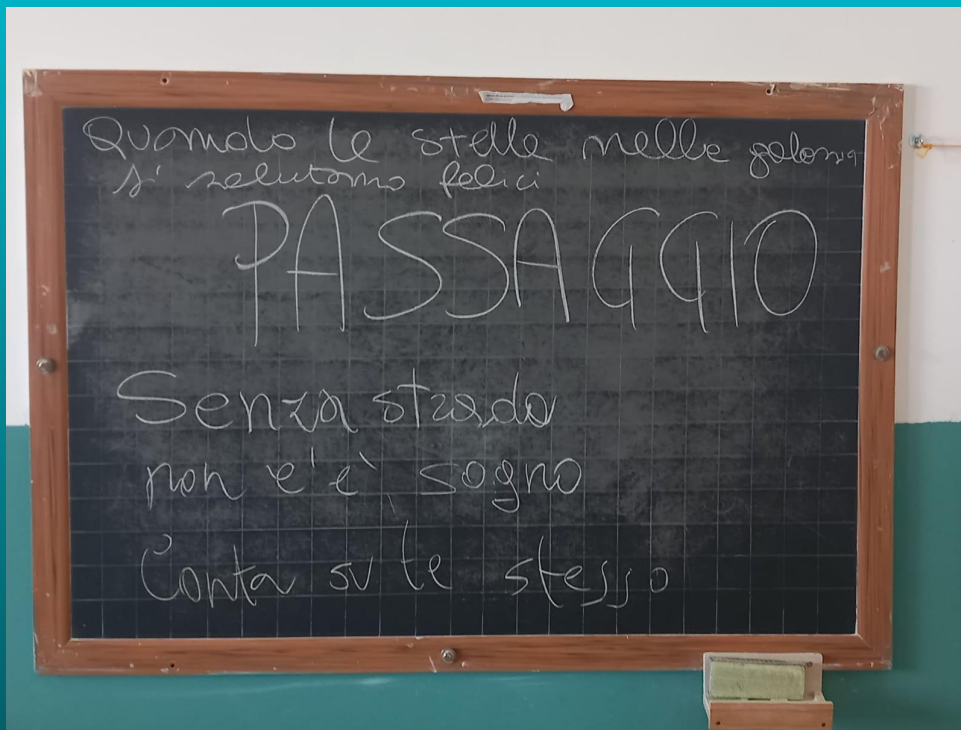 Quando le stelle nelle galassia
si salutano felici
PASSAGGIO
Senza strada
non c'è sogno
Conta su te stesso